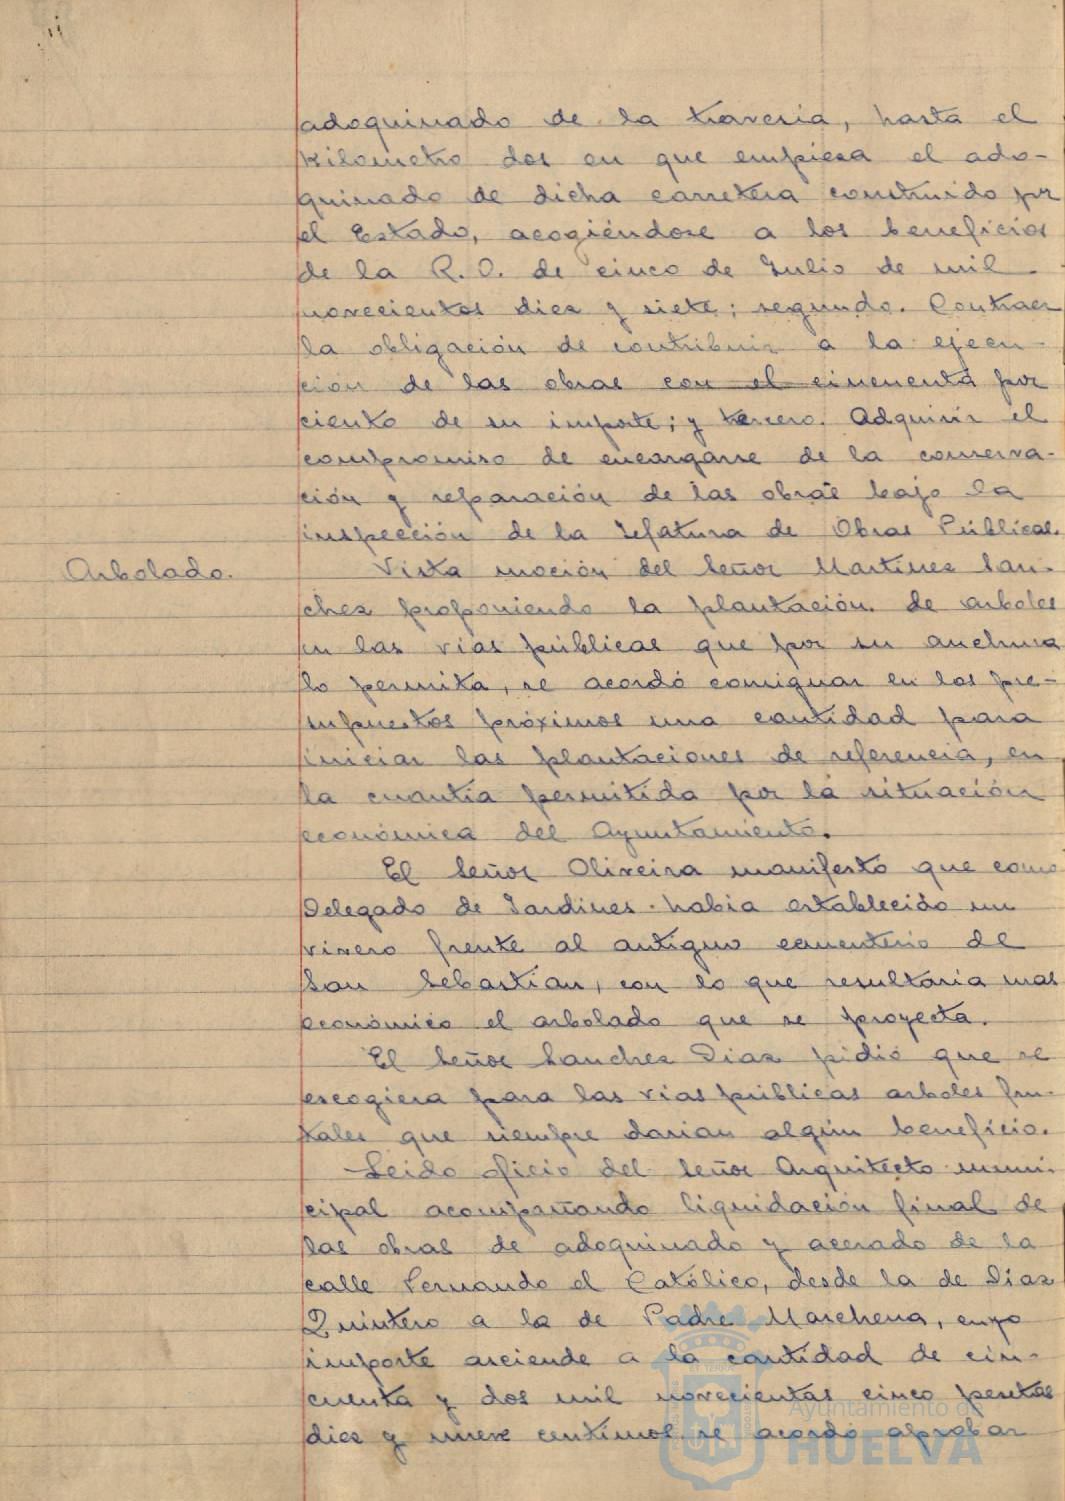 adoquinado de la traversia, hasta el
kilometro dos en que empieza el ado-
quinado de dicha carretera construido por
el Estado, acogiéndose a los beneficios
de la R.O. de cinco de Julio de mil
novecientos diez y siete; segundo. Contraer
la obligación de contribuir a la ejecu-
ción de las obras con el cincuenta por
ciento de su importe; y tercero. Adquirir el
compromiso de encargarse de la conserva-
ción y reparación de las obras bajo la
inspección de la Jefatura de Obras Públicas.
Arbolado. Vista moción del Señor Martinez San-
chez proponiendo la plantación de arboles
en las vias públicas que por su anchura
lo permita, se acordó consignar en los pre-
supuestos próximos una cantidad para
iniciar las plantaciones de referencia, en
la cuantia permitida por la situación
económica del Ayuntamiento.
El Señor Oliveira manifestó que como
Delegado de Jardines habia establecido un
vivero frente al antiguo cementerio de
San Sebastian, con lo que resultaria mas
económico el arbolado que se proyecta.
El Señor Sanchez Diaz pidió que se
escogiera para las vias públicas arboles fru-
tales que siempre darian algún beneficio.
Leido oficio del Señor Arquitecto muni-
cipal acompañando liquidación final de
las obras de adoquinado y acerado de la
calle Fernando el Católico, desde la de Diaz
Quintero a la de Padre Marchena, cuyo
importe asciende a la cantidad de cin-
cuenta y dos mil novecientas cinco pesetas
diez y nueve centimos se acordó aprobar
Ayuntamiento de
HUELVA